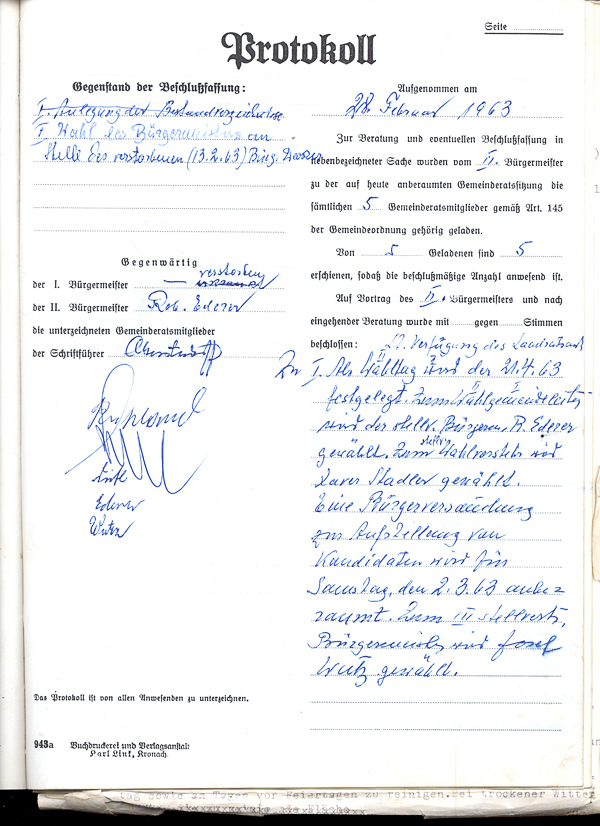 Seite
Protokoll
Gegenstand der Beschlußfassung:
I. Anlegung der Bestandverzeichnisse
I. Wahl des Bürgermeisters an
Stelle des verstorbenen (13.2.63) Bürg.
Gegenwärtig
verstorben
der I. Bürgermeister —
der II. Bürgermeister Rob. Ederer
die unterzeichneten Gemeinderatsmitglieder
der Schriftführer
Ederer
Wutz
Das Protokoll ist von allen Anwesenden zu unterzeichnen.
943a Buchdruckerei und Verlagsanstalt
Karl Link, Kronach.
Aufgenommen am
28. Februar 1963
Zur Beratung und eventuellen Beschlußfassung in
nebenbezeichneter Sache wurden vom II. Bürgermeister
zu der auf heute anberaumten Gemeinderatssitzung die
sämtlichen 5 Gemeinderatsmitglieder gemäß Art. 145
der Gemeindeordnung gehörig geladen.
Von 5 Geladenen sind 5
erschienen, sodaß die beschlußmäßige Anzahl anwesend ist.
Auf Vortrag des II. Bürgermeisters und nach
eingehender Beratung wurde mit gegen Stimmen
beschlossen: lt. Verfügung des Landratsamts
Zu I. Als Wahltag wird der 21.4.63
festgelegt. Zum Wahlgemeindeleiter
wird der stellv. Bürgerm. R. Ederer
gewählt. Zum stellv. Wahlvorsteher wird
Xaver Stadler gewählt.
Eine Bürgerversammlung
zur Aufstellung von
Kandidaten wird für
Samstag, den 2.3.63 anbe=
raumt. Zum III stellvertr.
Bürgermeister wird Josef
Wutz gewählt.
tag sowie an Tagen vor Feiertagen zu reinigen. Bei trockener Witter
die Fläche